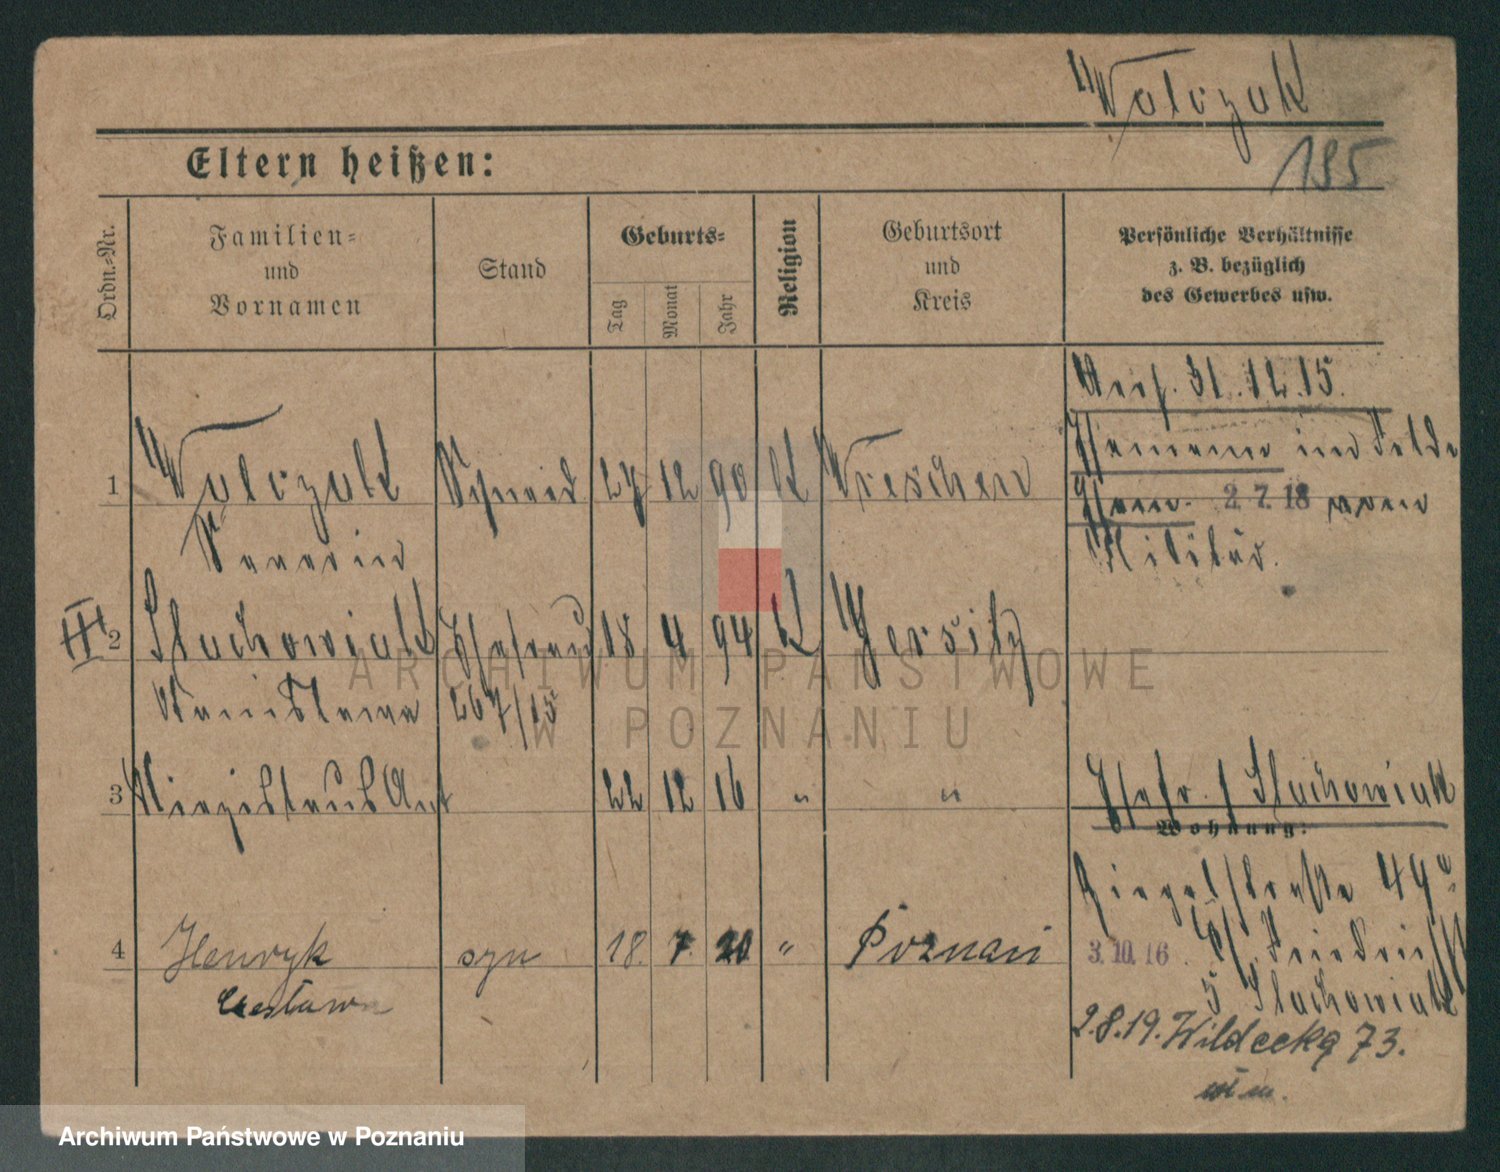 Walczak
195
Eltern heißen:
Ordn.-Nr.
Familien-
und
Vornamen
Stand
Geburts-
Tag
Monat
Jahr
Religion
Geburtsort
und
Kreis
Persönliche Verhältnisse
z. B. bezüglich
des Gewerbes usw.
31.12.15.
1 Walczak Schneid 27 12 90 K Wreschen
im Felde
2.7.18 vom
Militär.
III 2 Stachowiak Ehefrau 18 4 94 K Jersitz
Stanislawa 267/15
3 22 12 16 " "
Stachowiak
Wohnung:
4 Henryk syn 18. 7. 20 " Poznań
Czesław
49
3.10.16.
5 Stachowiak
2.8.19. Wildecka 73.
ARCHIWUM PAŃSTWOWE
W POZNANIU
Archiwum Państwowe w Poznaniu